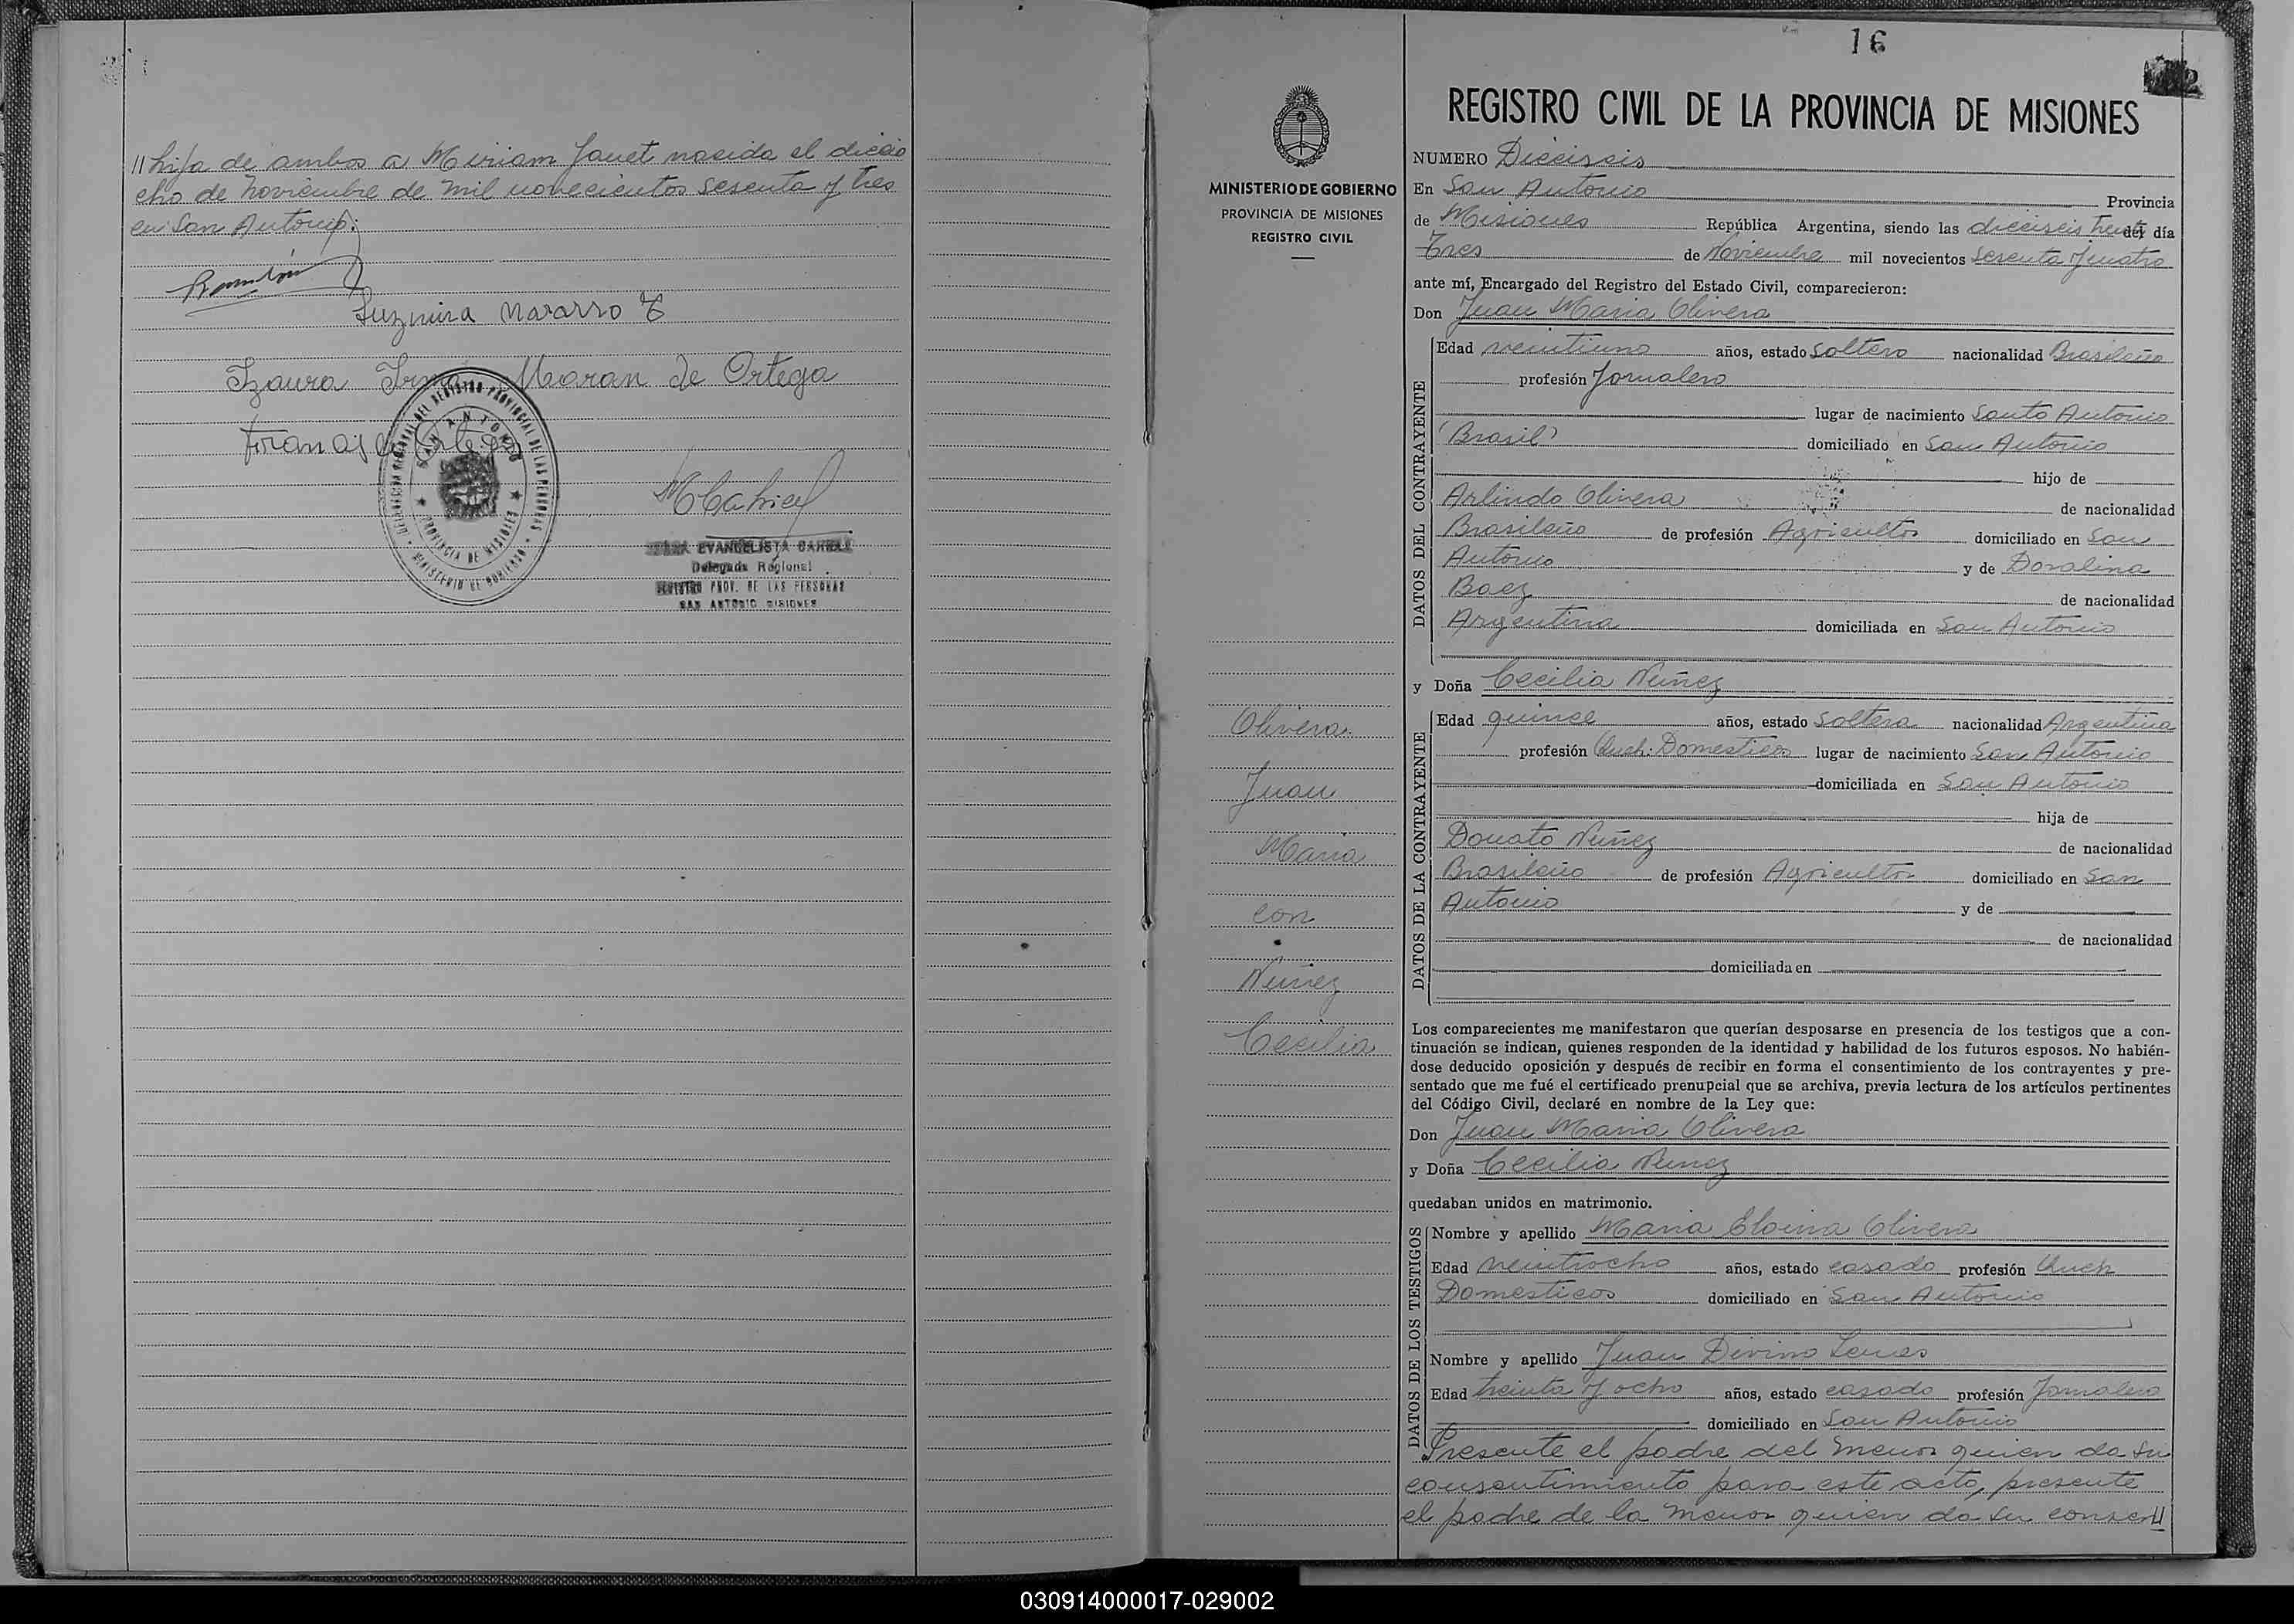 // hija de ambos a Miriam Janet nacida el dieci
ocho de noviembre de mil novecientos sesenta y tres
en San Antonio.
Luzmira Navarro
Izaura Irma Moran de Ortega
DELEGACION REGIONAL DEL REGISTRO PROVINCIAL DE LAS PERSONAS
SAN ANTONIO
PROVINCIA DE MISIONES
MINISTERIO DE GOBIERNO
EVANGELISTA
Delegada Regional
REGISTRO PROV. DE LAS PERSONAS
SAN ANTONIO MISIONES
16
MINISTERIO DE GOBIERNO
PROVINCIA DE MISIONES
REGISTRO CIVIL
Olivera
Juan
Maria
con
Nuñez
Cecilia
REGISTRO CIVIL DE LA PROVINCIA DE MISIONES
NUMERO Dieciseis
En San Antonio Provincia
de Misiones República Argentina, siendo las dieciseis treinta del día
Tres de Noviembre mil novecientos Sesenta y cuatro
ante mí, Encargado del Registro del Estado Civil, comparecieron:
Don Juan Maria Olivera
DATOS DEL CONTRAYENTE
Edad veintiuno años, estado Soltero nacionalidad Brasileño
profesión Jornalero
lugar de nacimiento Santo Antonio
(Brasil) domiciliado en San Antonio
hijo de
Arlindo Olivera de nacionalidad
Brasileño de profesión Agricultor domiciliado en San
Antonio y de Doralina
Baez de nacionalidad
Argentina domiciliada en San Antonio
y Doña Cecilia Nuñez
DATOS DE LA CONTRAYENTE
Edad quince años, estado Soltera nacionalidad Argentina
profesión Queh: Domesticos lugar de nacimiento San Antonio
domiciliada en San Antonio
hija de
Donato Nuñez de nacionalidad
Brasileño de profesión Agricultor domiciliado en San
Antonio y de
de nacionalidad
domiciliada en
Los comparecientes me manifestaron que querían desposarse en presencia de los testigos que a con-
tinuación se indican, quienes responden de la identidad y habilidad de los futuros esposos. No habién-
dose deducido oposición y después de recibir en forma el consentimiento de los contrayentes y pre-
sentado que me fué el certificado prenupcial que se archiva, previa lectura de los artículos pertinentes
del Código Civil, declaré en nombre de la Ley que:
Don Juan Maria Olivera
y Doña Cecilia Nuñez
quedaban unidos en matrimonio.
DATOS DE LOS TESTIGOS
Nombre y apellido Maria Eloina Olivera
Edad veintiocho años, estado casado profesión Queh
Domesticos domiciliado en San Antonio
Nombre y apellido Juan Divino
Edad treinta y ocho años, estado casado profesión Jornalero
domiciliado en San Antonio
Presente el padre del menor quien da su
consentimiento para este acto, presente
el padre de la menor quien da su consen//
030914000017-029002